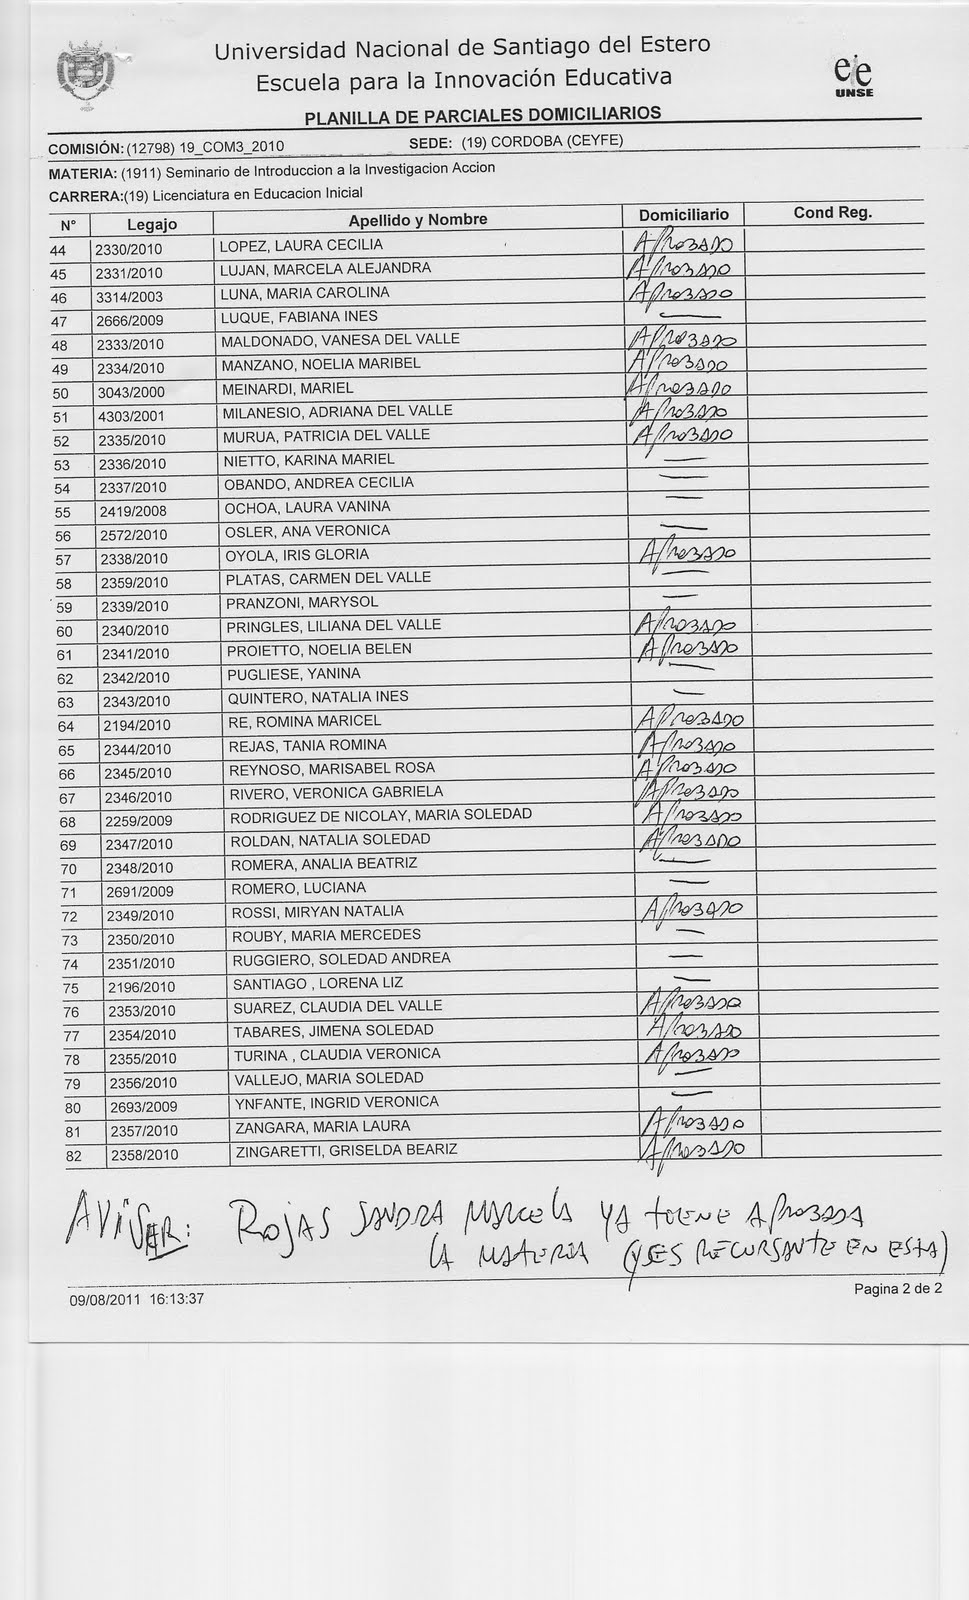 Universidad Nacional de Santiago del Estero
Escuela para la Innovación Educativa
eie
UNSE
PLANILLA DE PARCIALES DOMICILIARIOS
COMISIÓN: (12798) 19_COM3_2010 SEDE: (19) CORDOBA (CEYFE)
MATERIA: (1911) Seminario de Introduccion a la Investigacion Accion
CARRERA:(19) Licenciatura en Educacion Inicial
N° Legajo Apellido y Nombre Domiciliario Cond Reg.
44 2330/2010 LOPEZ, LAURA CECILIA Aprobado
45 2331/2010 LUJAN, MARCELA ALEJANDRA Aprobado
46 3314/2003 LUNA, MARIA CAROLINA Aprobado
47 2666/2009 LUQUE, FABIANA INES —
48 2333/2010 MALDONADO, VANESA DEL VALLE Aprobado
49 2334/2010 MANZANO, NOELIA MARIBEL Aprobado
50 3043/2000 MEINARDI, MARIEL Aprobado
51 4303/2001 MILANESIO, ADRIANA DEL VALLE Aprobado
52 2335/2010 MURUA, PATRICIA DEL VALLE Aprobado
53 2336/2010 NIETTO, KARINA MARIEL —
54 2337/2010 OBANDO, ANDREA CECILIA —
55 2419/2008 OCHOA, LAURA VANINA —
56 2572/2010 OSLER, ANA VERONICA —
57 2338/2010 OYOLA, IRIS GLORIA Aprobado
58 2359/2010 PLATAS, CARMEN DEL VALLE —
59 2339/2010 PRANZONI, MARYSOL —
60 2340/2010 PRINGLES, LILIANA DEL VALLE Aprobado
61 2341/2010 PROIETTO, NOELIA BELEN Aprobado
62 2342/2010 PUGLIESE, YANINA —
63 2343/2010 QUINTERO, NATALIA INES —
64 2194/2010 RE, ROMINA MARICEL Aprobado
65 2344/2010 REJAS, TANIA ROMINA Aprobado
66 2345/2010 REYNOSO, MARISABEL ROSA Aprobado
67 2346/2010 RIVERO, VERONICA GABRIELA Aprobado
68 2259/2009 RODRIGUEZ DE NICOLAY, MARIA SOLEDAD Aprobado
69 2347/2010 ROLDAN, NATALIA SOLEDAD Aprobado
70 2348/2010 ROMERA, ANALIA BEATRIZ —
71 2691/2009 ROMERO, LUCIANA —
72 2349/2010 ROSSI, MIRYAN NATALIA Aprobado
73 2350/2010 ROUBY, MARIA MERCEDES —
74 2351/2010 RUGGIERO, SOLEDAD ANDREA —
75 2196/2010 SANTIAGO , LORENA LIZ —
76 2353/2010 SUAREZ, CLAUDIA DEL VALLE Aprobado
77 2354/2010 TABARES, JIMENA SOLEDAD Aprobado
78 2355/2010 TURINA , CLAUDIA VERONICA Aprobado
79 2356/2010 VALLEJO, MARIA SOLEDAD —
80 2693/2009 YNFANTE, INGRID VERONICA —
81 2357/2010 ZANGARA, MARIA LAURA Aprobado
82 2358/2010 ZINGARETTI, GRISELDA BEARIZ Aprobado
AVISAR: ROJAS SANDRA MARCELA YA TIENE APROBADA
LA MATERIA (Y ES RECURSANTE EN ESTA)
09/08/2011 16:13:37 Pagina 2 de 2